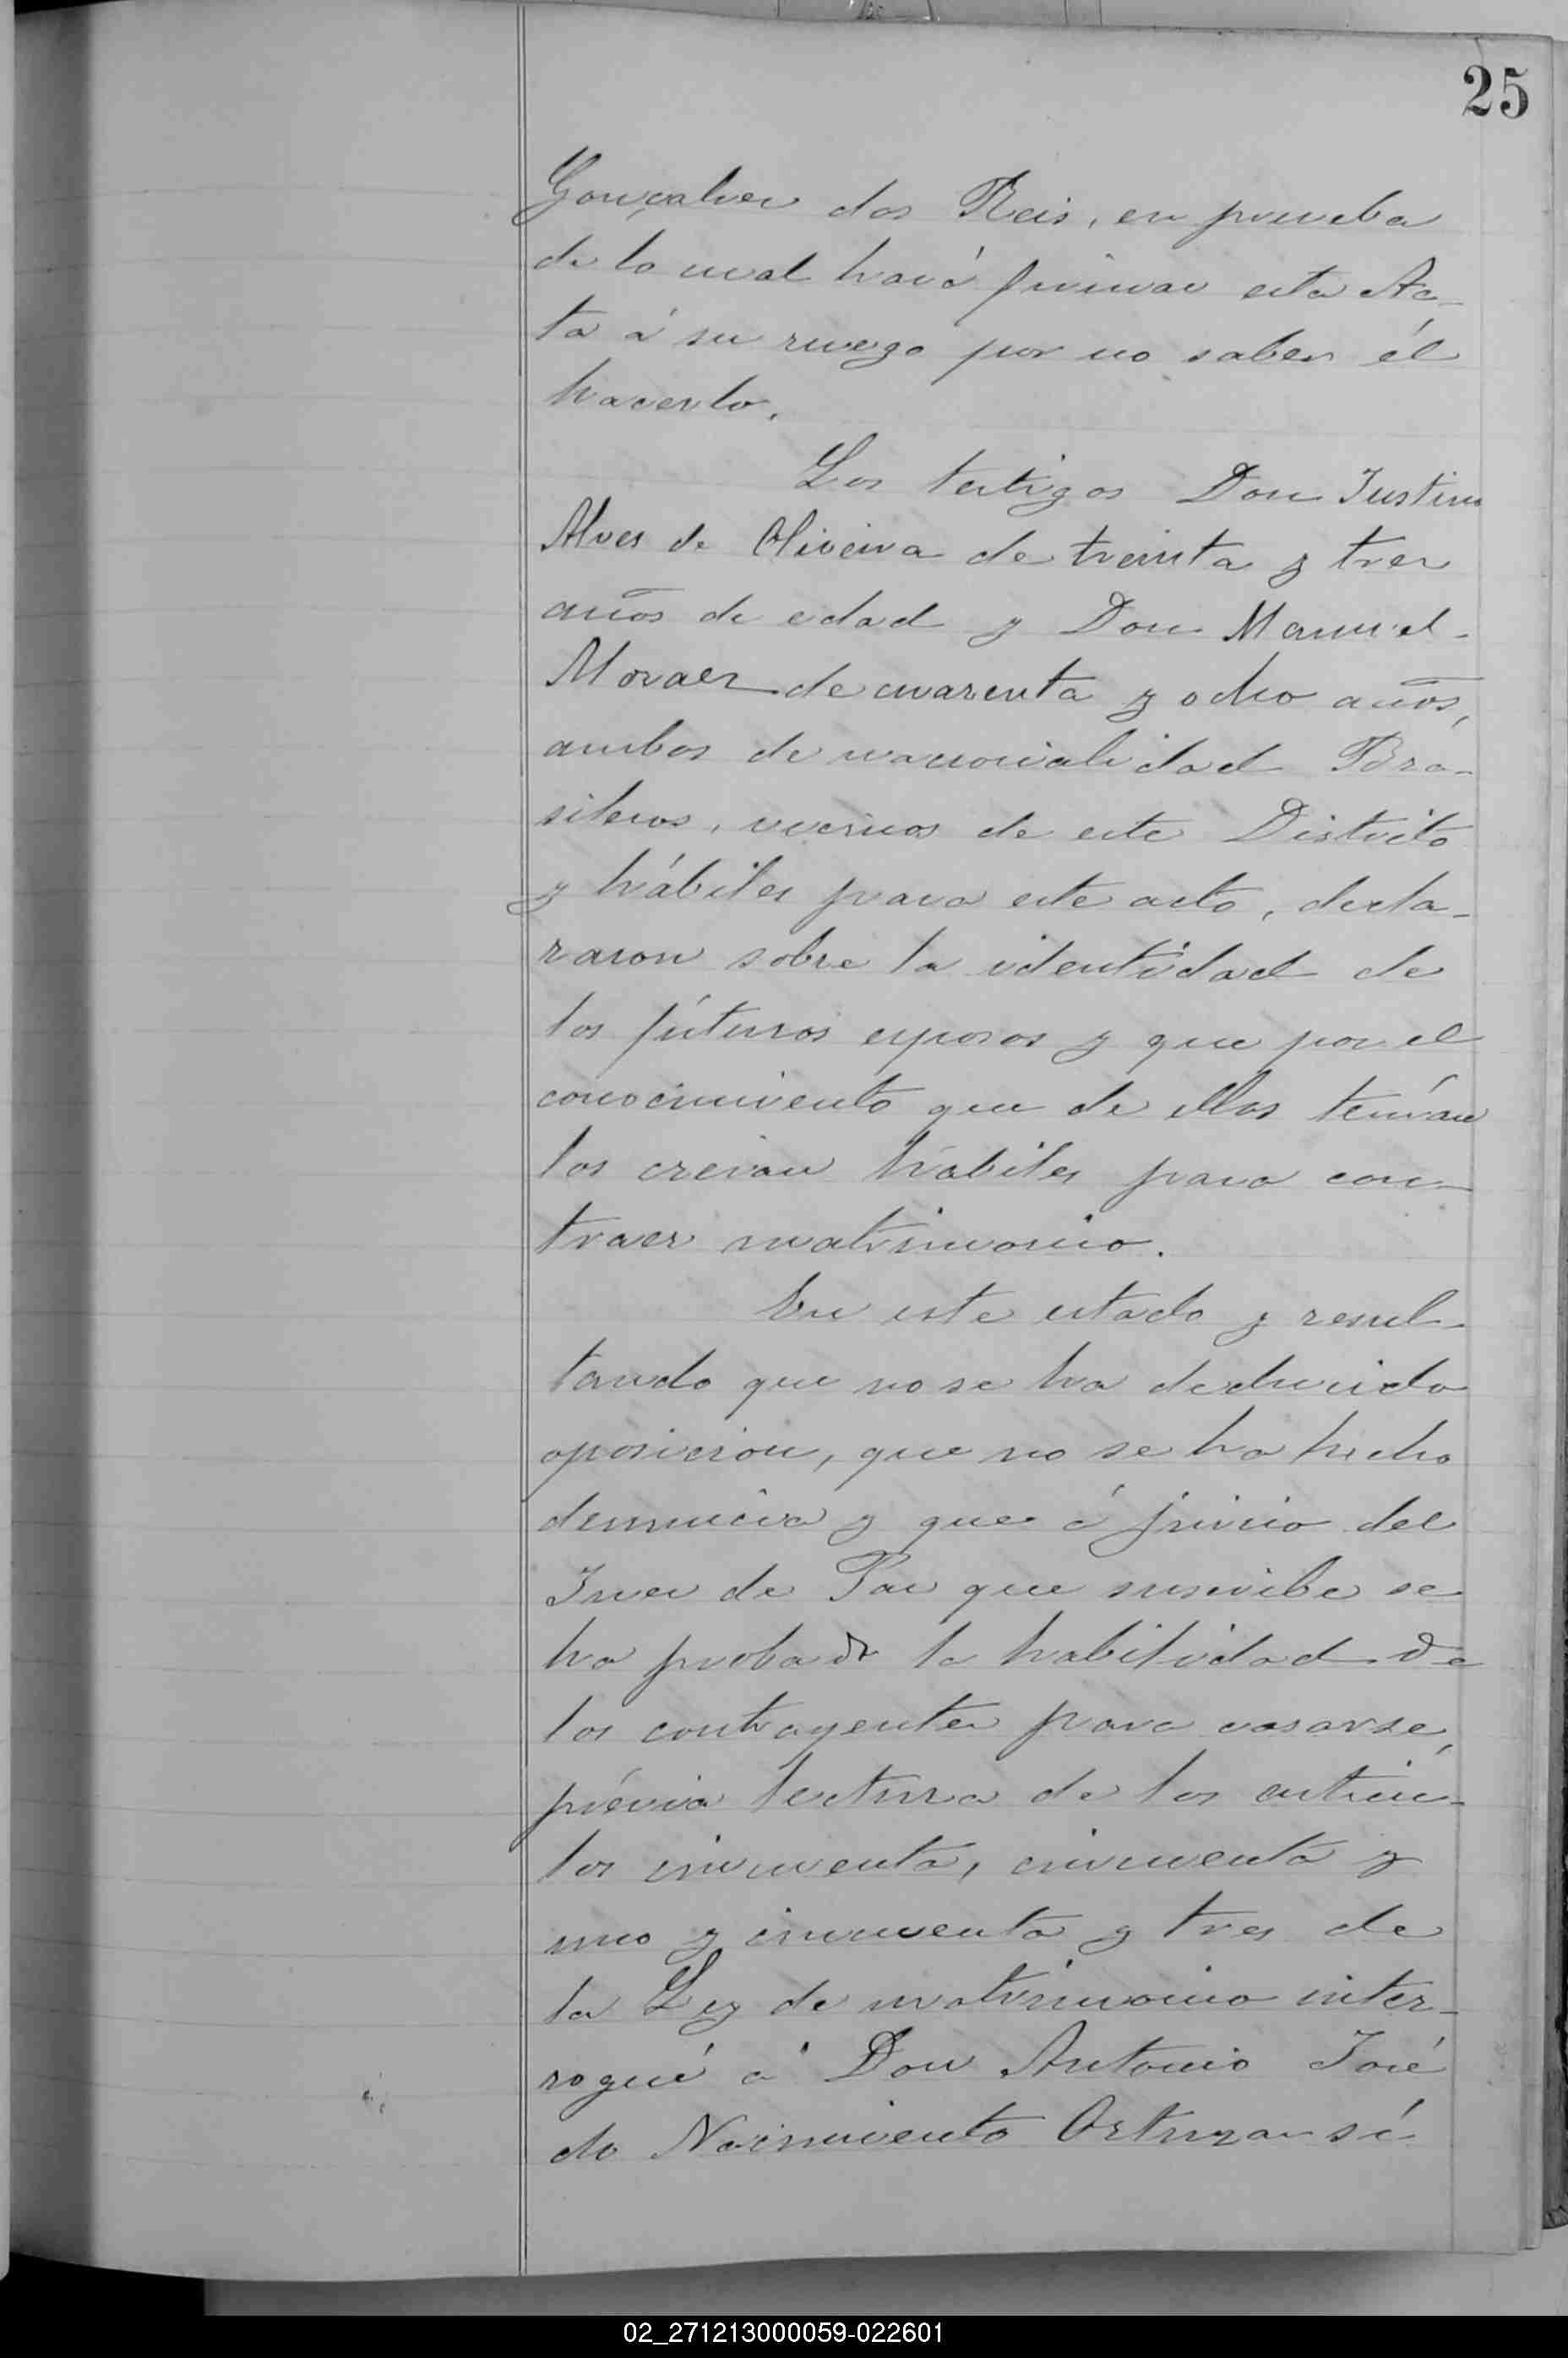 25
Gonçalves dos Reis, en prueba
de lo cual hará firmar esta Ac-
ta á su ruego por no saber él
hacerlo.
Los testigos Don Justino
Alves de Oliveira de treinta y tres
años de edad y Don Manuel
Moraes de cuarenta y ocho años,
ambos de nacionalidad Bra-
sileros, vecinos de este Distrito
y hábiles para este acto, decla-
raron sobre la identidad de
los fúturos esposos y que por el
conocimiento que de ellos tenían
los creian hábiles para con-
traer matrimonio.
En este estado y resul-
tando que no se ha deducido
oposicion, que no se ha hecho
denuncia y que á juicio del
Juez de Paz que suscribe se
ha probado la habilidad de
los contrayentes para casarse,
prévia lectura de los artícu-
los cincuenta, cincuenta y
uno y cincuenta y tres de
la Ley de matrimonio inter-
rogué á Don Antonio José
do Nacimiento Ortuza sí
02_271213000059-022601